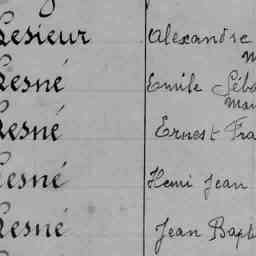 Lesieur Alexandre
Lesné Emile Séba
Lesné Ernest Fra
Lesné Henri Jean
Lesné Jean Bapt